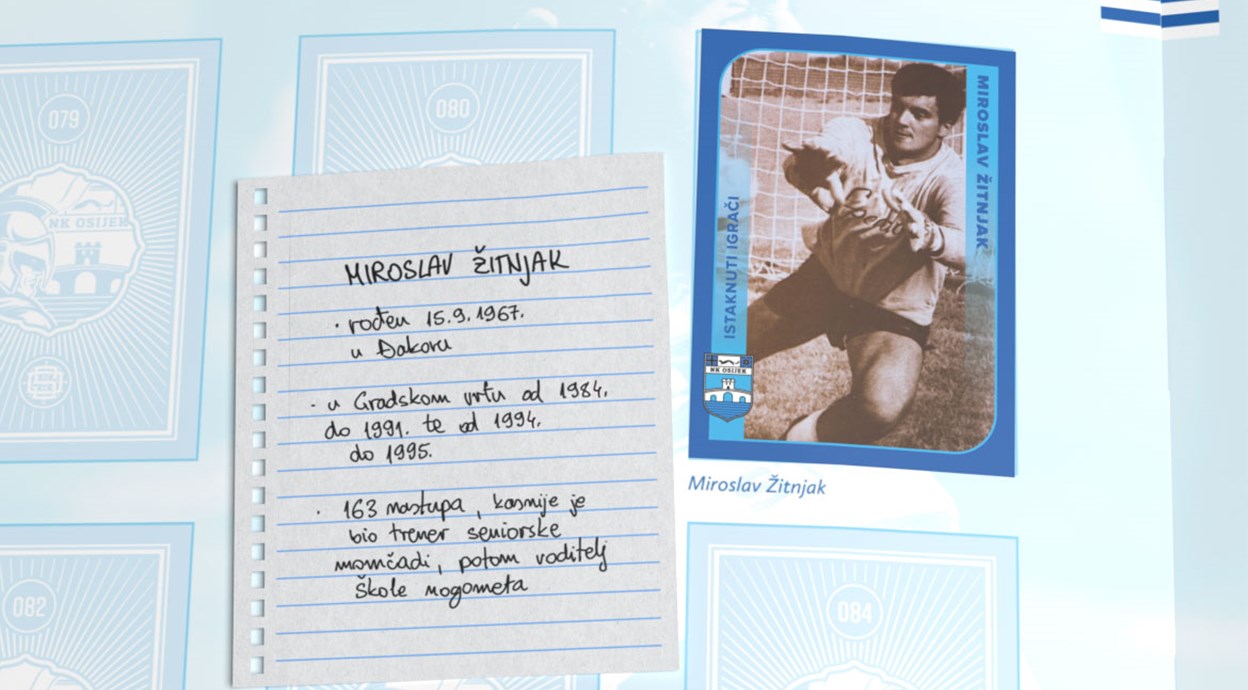 079
NK OSIJEK
080
MIROSLAV ŽITNJAK
· rođen 15.9.1967.
u Đakovu
· u Gradskom vrtu od 1984.
do 1991. te od 1994.
do 1995.
· 163 nastupa, kasnije je
bio trener seniorske
momčadi, potom voditelj
škole nogometa
ISTAKNUTI IGRAČI
MIROSLAV ŽITNJAK
NK OSIJEK
Miroslav Žitnjak
082
084